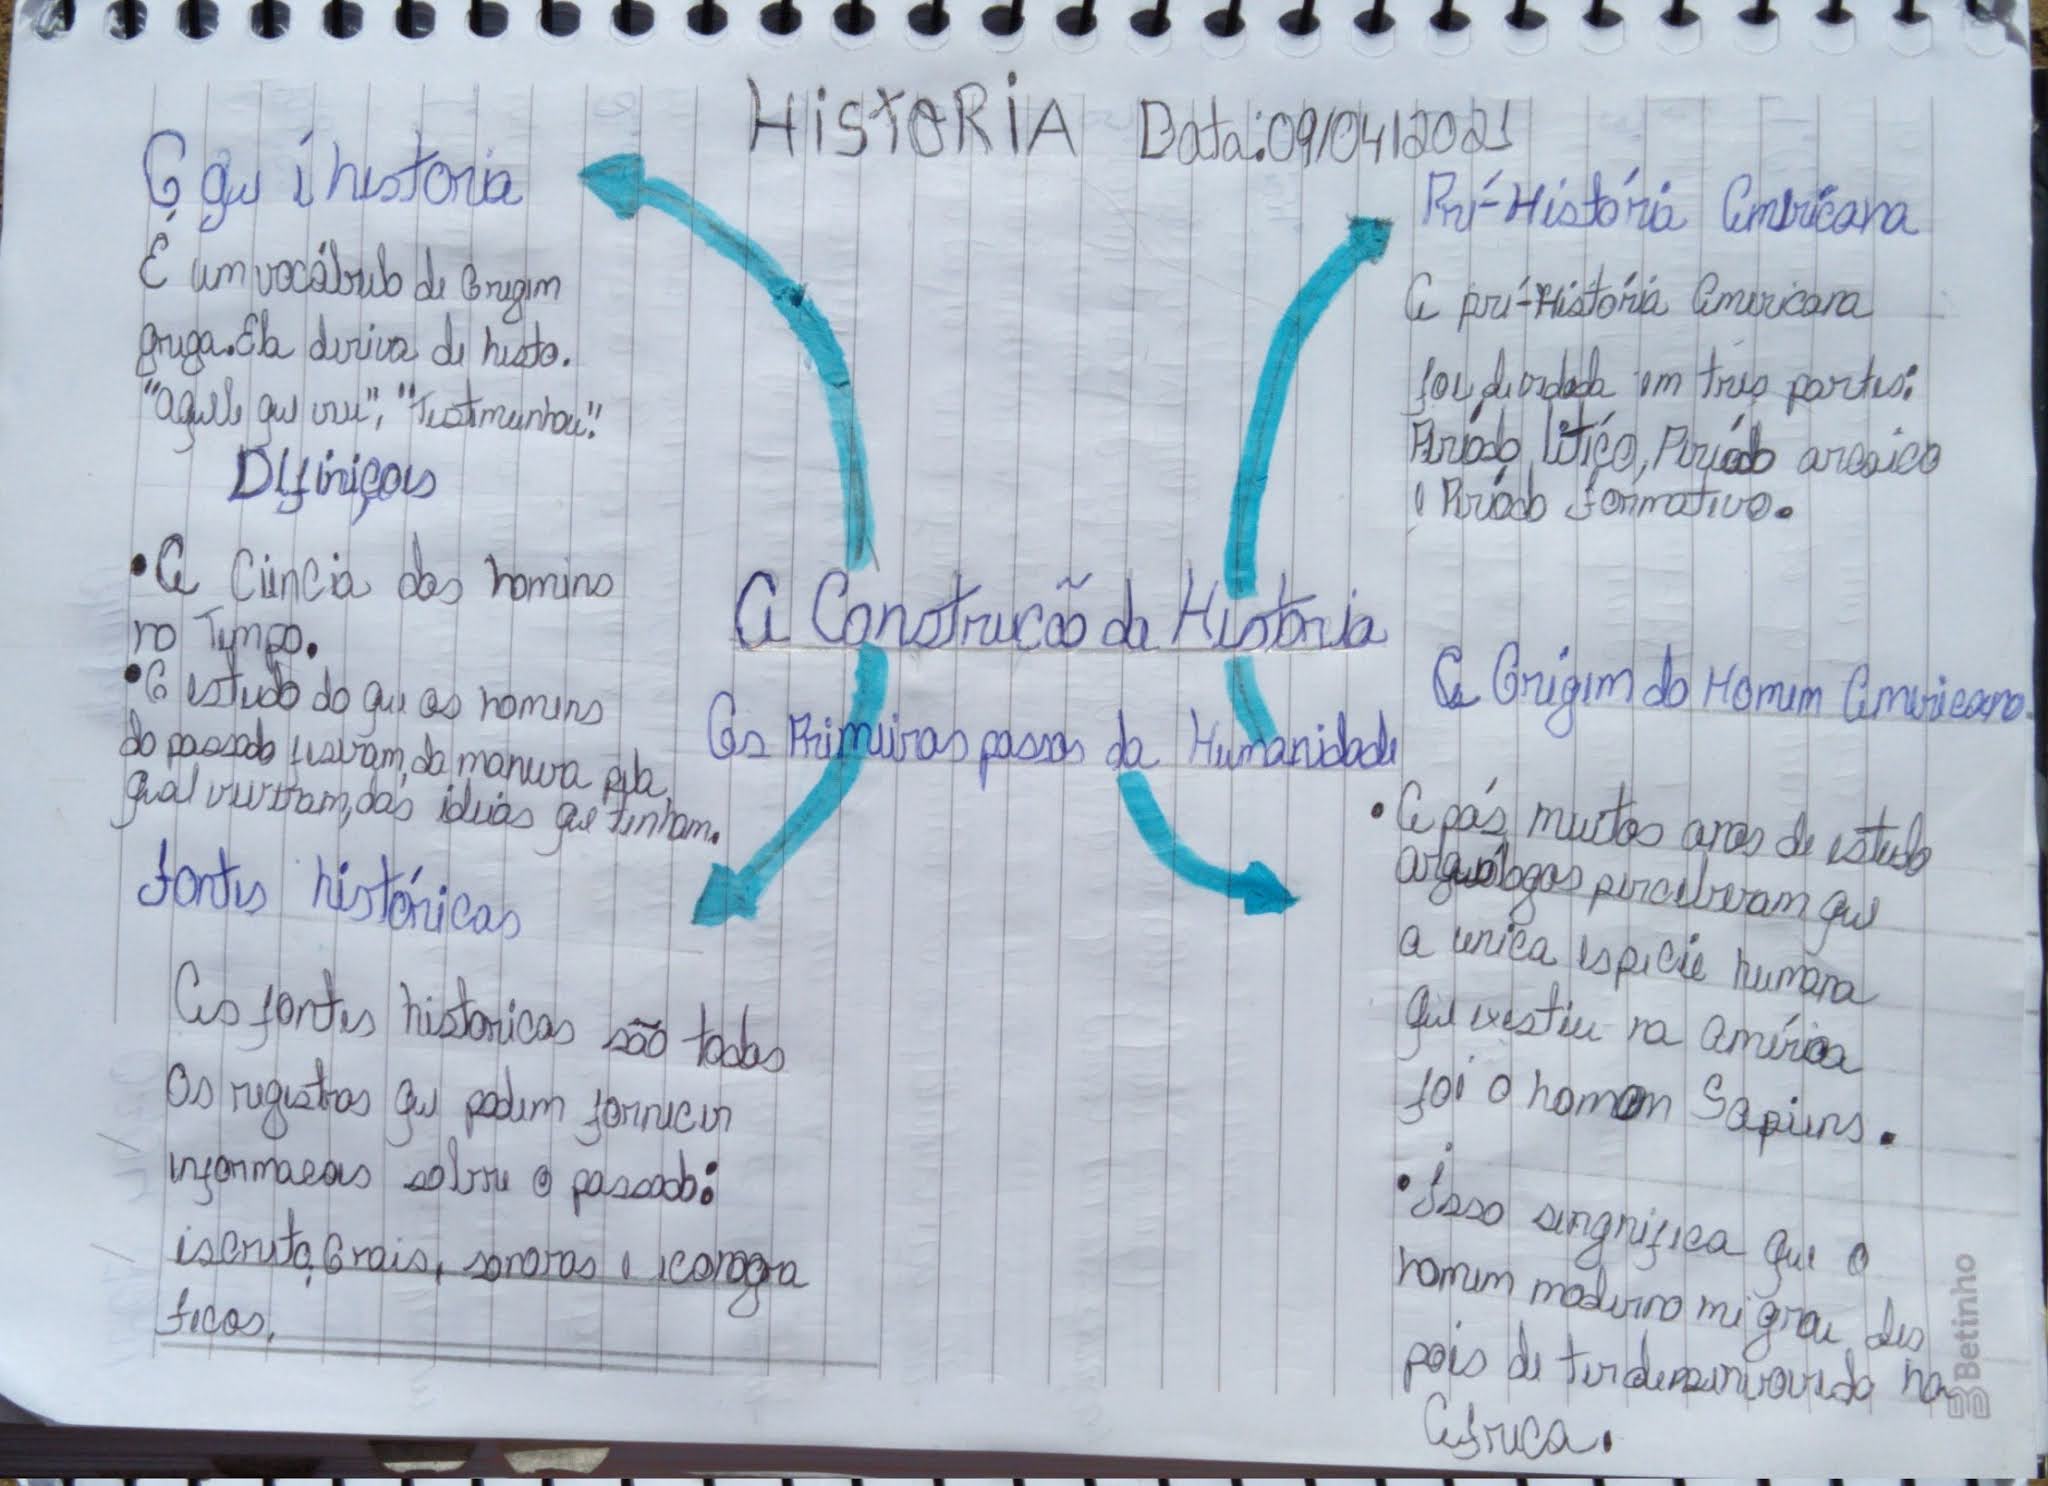 HISTORIA Data: 09/04/2021
O que é historia
É um vocábulo de Origem
grega. Ela deriva de histo.
"aquele que viu", "Testimunhou".
Definiçoes
• A Ciência dos homens
no Tempo.
• O estudo do que os homens
do passado fizeram, da maneira pela
qual viveram, das ideias que tinham.
Fontes históricas
As fontes historicas são todos
Os registros que podem fornecer
informacoes sobre o passado:
escrita, Orais, sonoras e iconogra
ficas.
A Construcão da Historia
Os Primeiros passos da Humanidade
Pré-História Americana
A pré-História Americana
foi dividida em tres partes:
Periódo lítico, Periódo arcaico
e Periódo formativo.
A Origem do Homem Americano.
• Apos muitos anos de estudo
arqueólogos perceberam que
a unica especie humana
que existiu na América
foi o homem Sapiens.
• Isso singnifica que o
homem moderno migrou des
pois de ter desenvolvido na
Africa.
Betinho